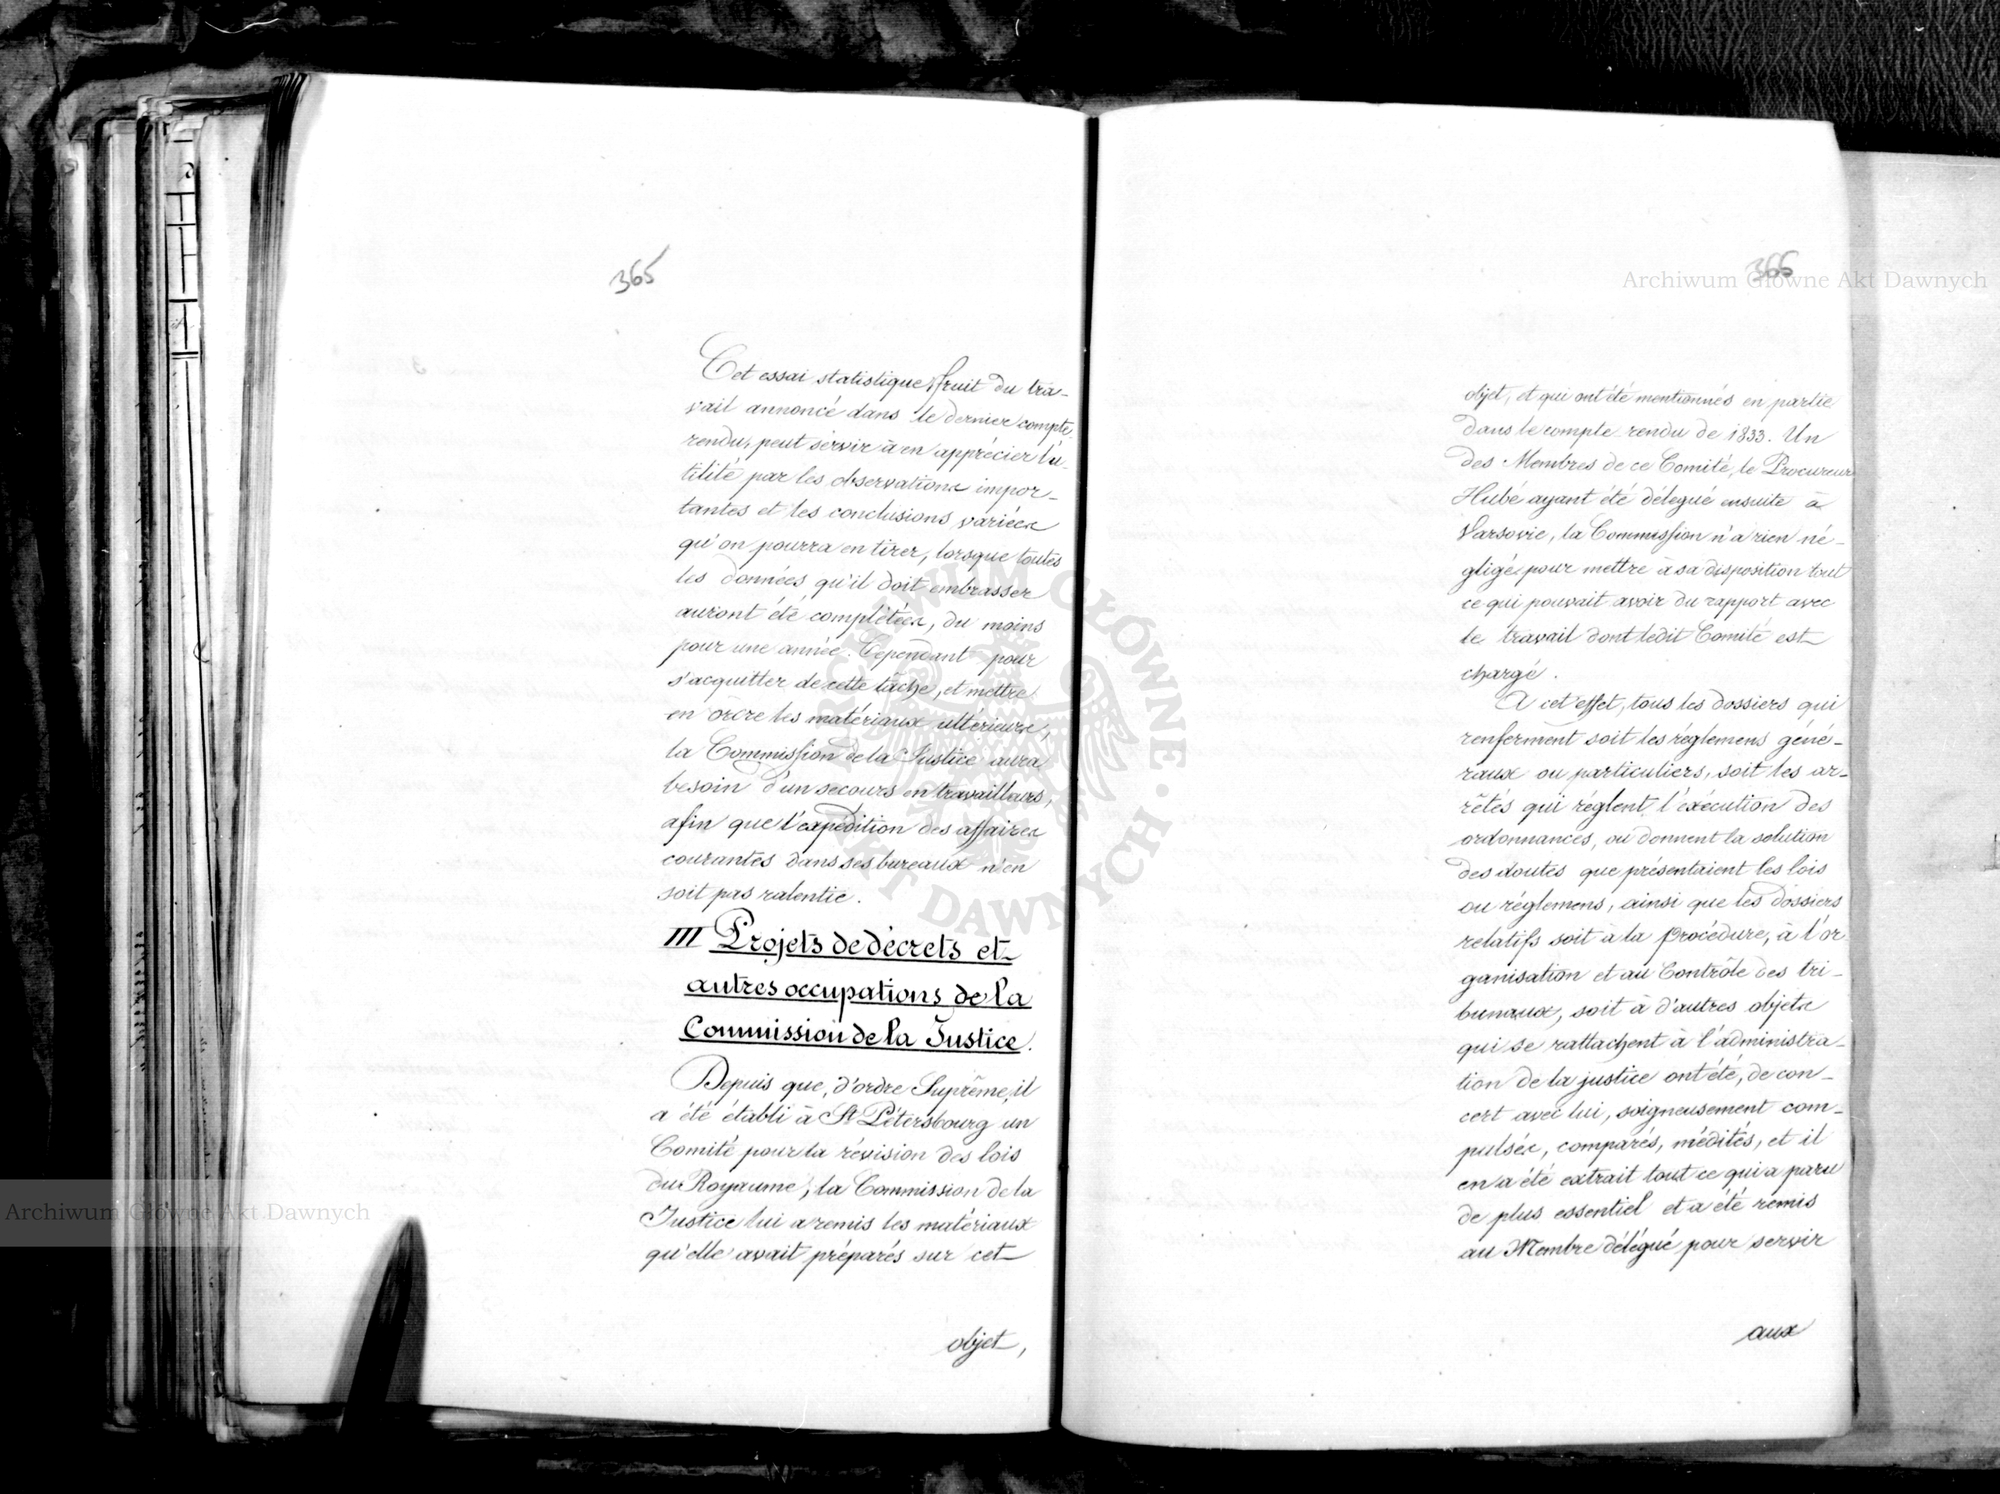 365
Cet essai statistique, fruit du tra-
vail annoncé dans le dernier compte
rendu, peut servir à en apprécier l'u-
tilité par les observations impor-
tantes et les conclusions variées
qu'on pourra en tirer, lorsque toutes
les données qu'il doit embrasser
auront été complétées, du moins
pour une année. Cependant pour
s'acquitter de cette tâche, et mettre
en ordre les matériaux ultérieurs,
la Commission de la Justice aura
besoin d'un secours en travailleurs,
afin que l'expédition des affaires
courantes dans ses bureaux n'en
soit pas ralentie.
III Projets de décrets et
autres occupations de la
Commission de la Justice.
Depuis que, d'ordre Suprême, il
a été établi à St Pétersbourg un
Comité pour la révision des lois
du Royaume, la Commission de la
Justice lui a remis les matériaux
qu'elle avait préparés sur cet
objet,
366
objet, et qui ont été mentionnés en partie
dans le compte-rendu de 1833. Un
des Membres de ce Comité, le Procureur
Hubé ayant été délegué ensuite à
Varsovie, la Commission n'a rien né-
gligé pour mettre à sa disposition tout
ce qui pouvait avoir du rapport avec
le travail dont ledit Comité est
chargé.
A cet effet, tous les dossiers qui
renferment soit les réglemens géné-
raux ou particuliers, soit les ar-
rêtés qui réglent l'exécution des
ordonnances, ou donnent la solution
des doutes que présentaient les lois
ou réglemens, ainsi que les dossiers
relatifs soit à la procédure, à l'or
ganisation et au Contrôle des tri-
bunaux, soit à d'autres objets
qui se rattachent à l'administra-
tion de la justice ont été, de con-
cert avec lui, soigneusement com-
pulsés, comparés, médités, et il
en a été extrait tout ce qui a paru
de plus essentiel et a été remis
au Membre délégué pour servir
aux
Archiwum Główne Akt Dawnych
Archiwum Główne Akt Dawnych
ARCHIWUM GŁÓWNE AKT DAWNYCH